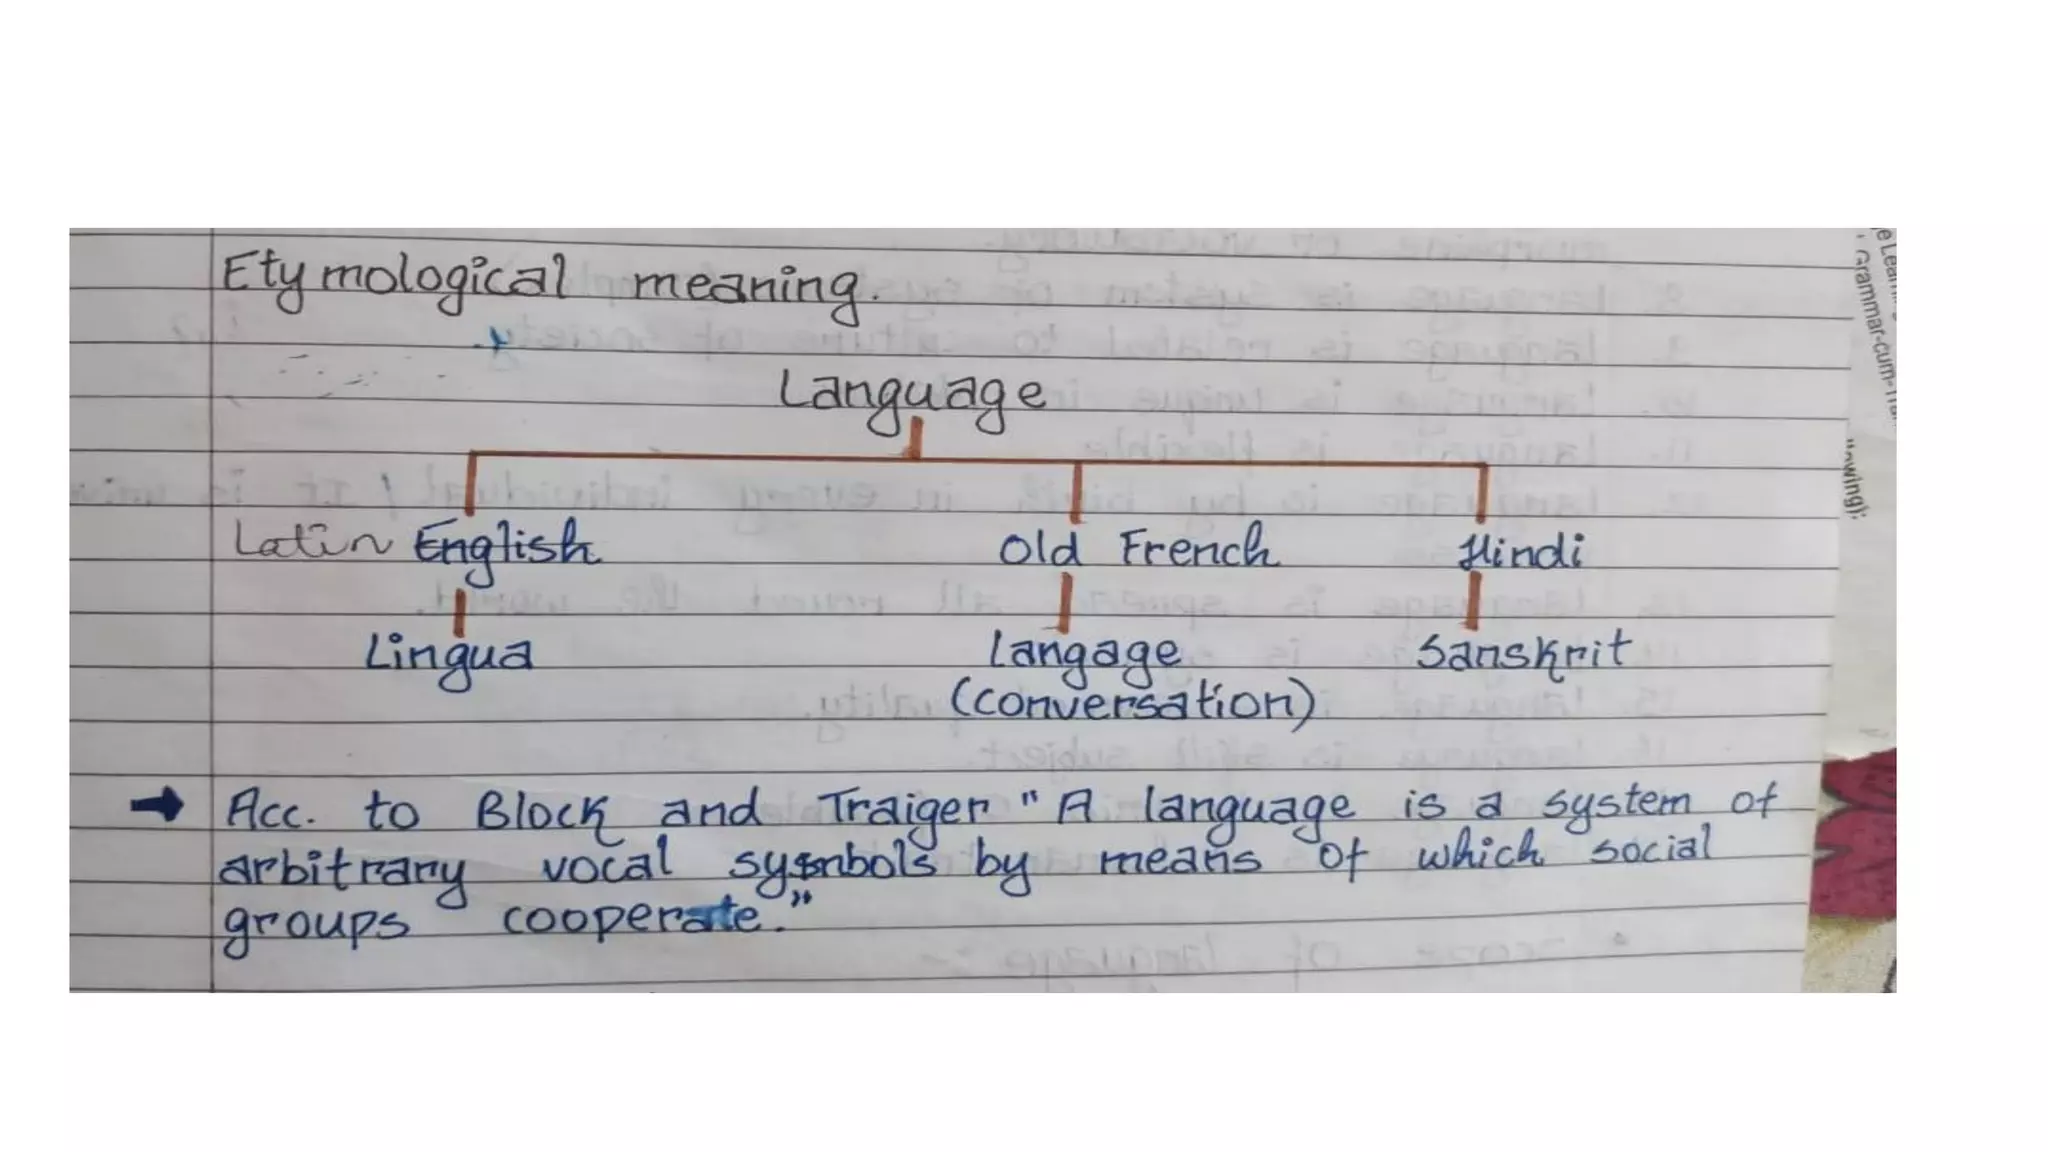 Etymological meaning.
Language
Latin English Old French Hindi
Lingua Langage Sanskrit
(conversation)
→ Acc. to Block and Traiger "A language is a system of
arbitrary vocal symbols by means of which social
groups cooperate."
Grammar-cum-